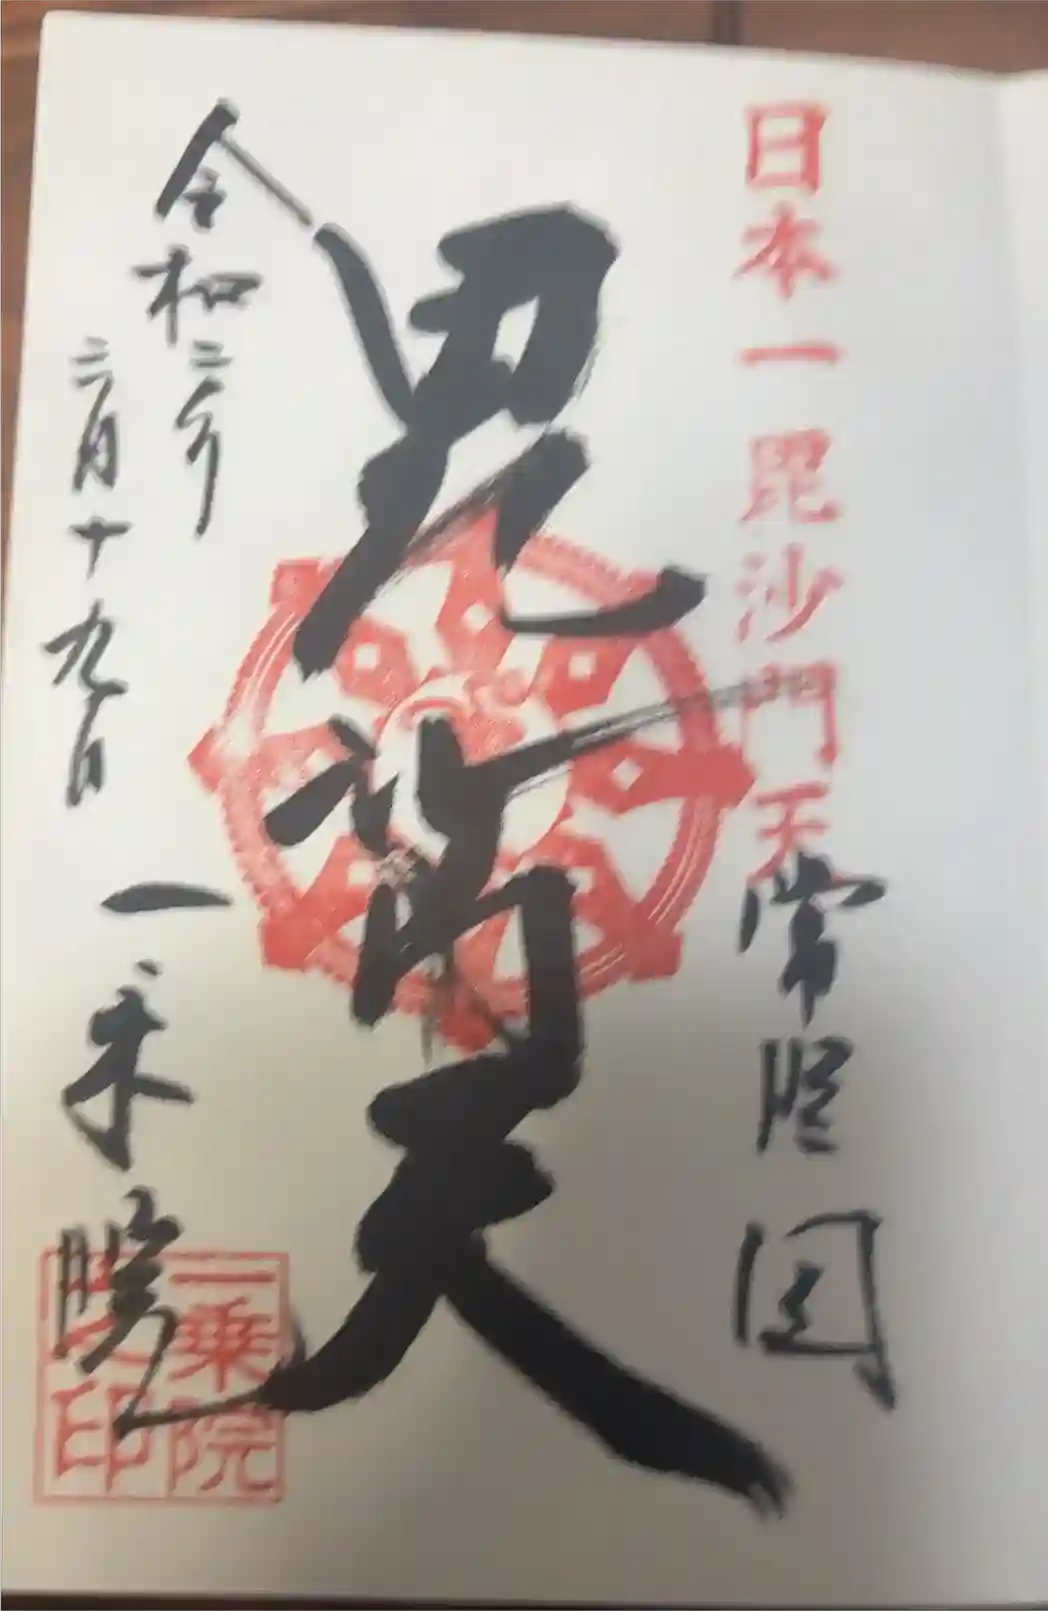 日本一毘沙門天
常陸国
毘沙門天
令和二年
三月十九日
一乗院
一乗院
之印